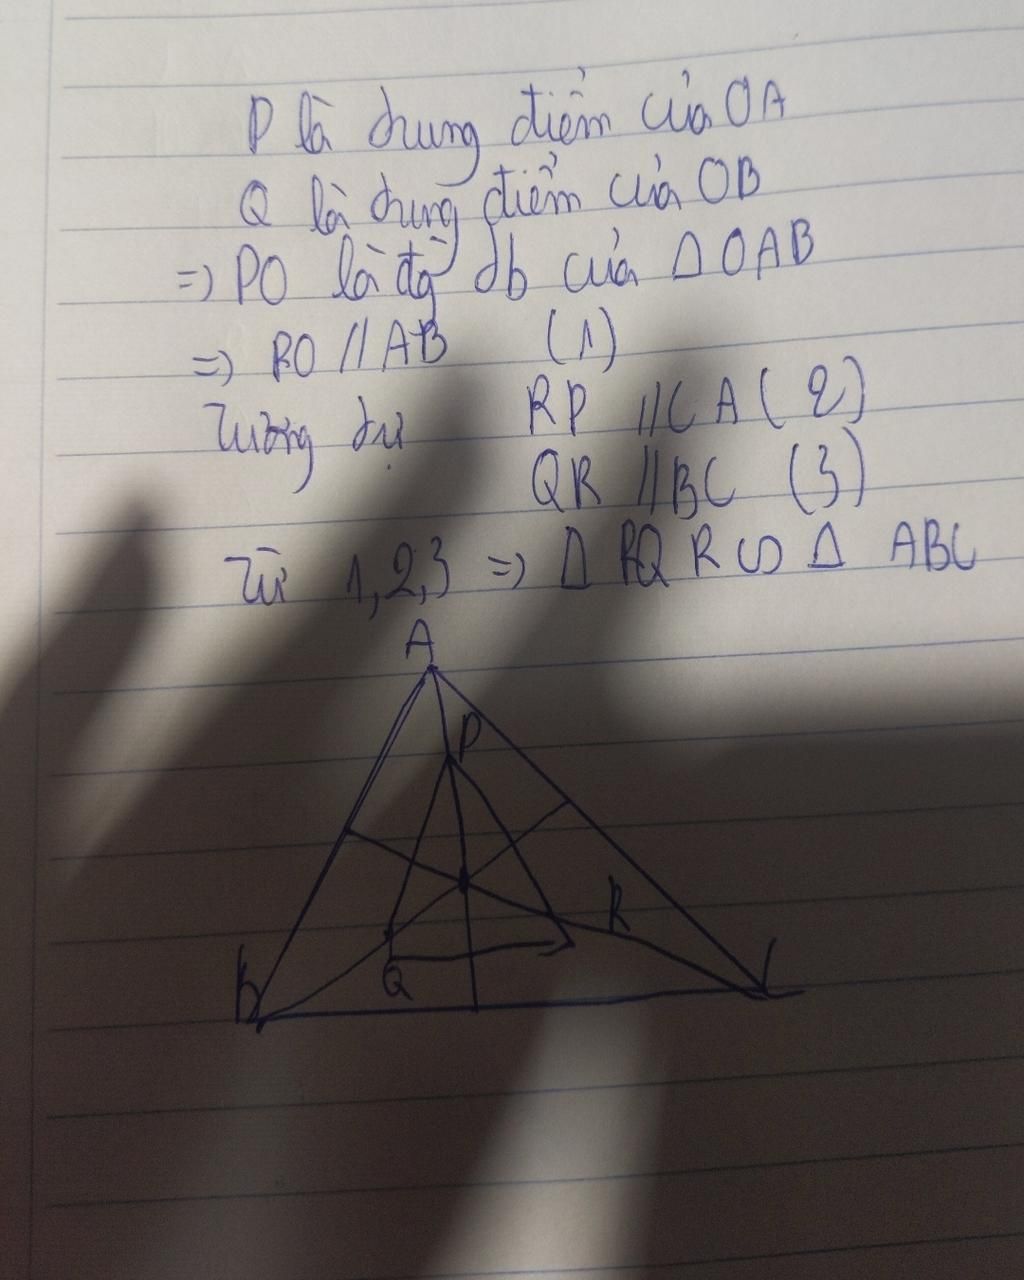 P là trung điểm của OA
Q là trung điểm của OB
=> PO là đg tb của Δ OAB
=> PO // AB (1)
Tương tự RP // CA (2)
QR // BC (3)
Từ 1,2,3 => Δ PQR ∽ Δ ABC
A
P
R
B
Q
C